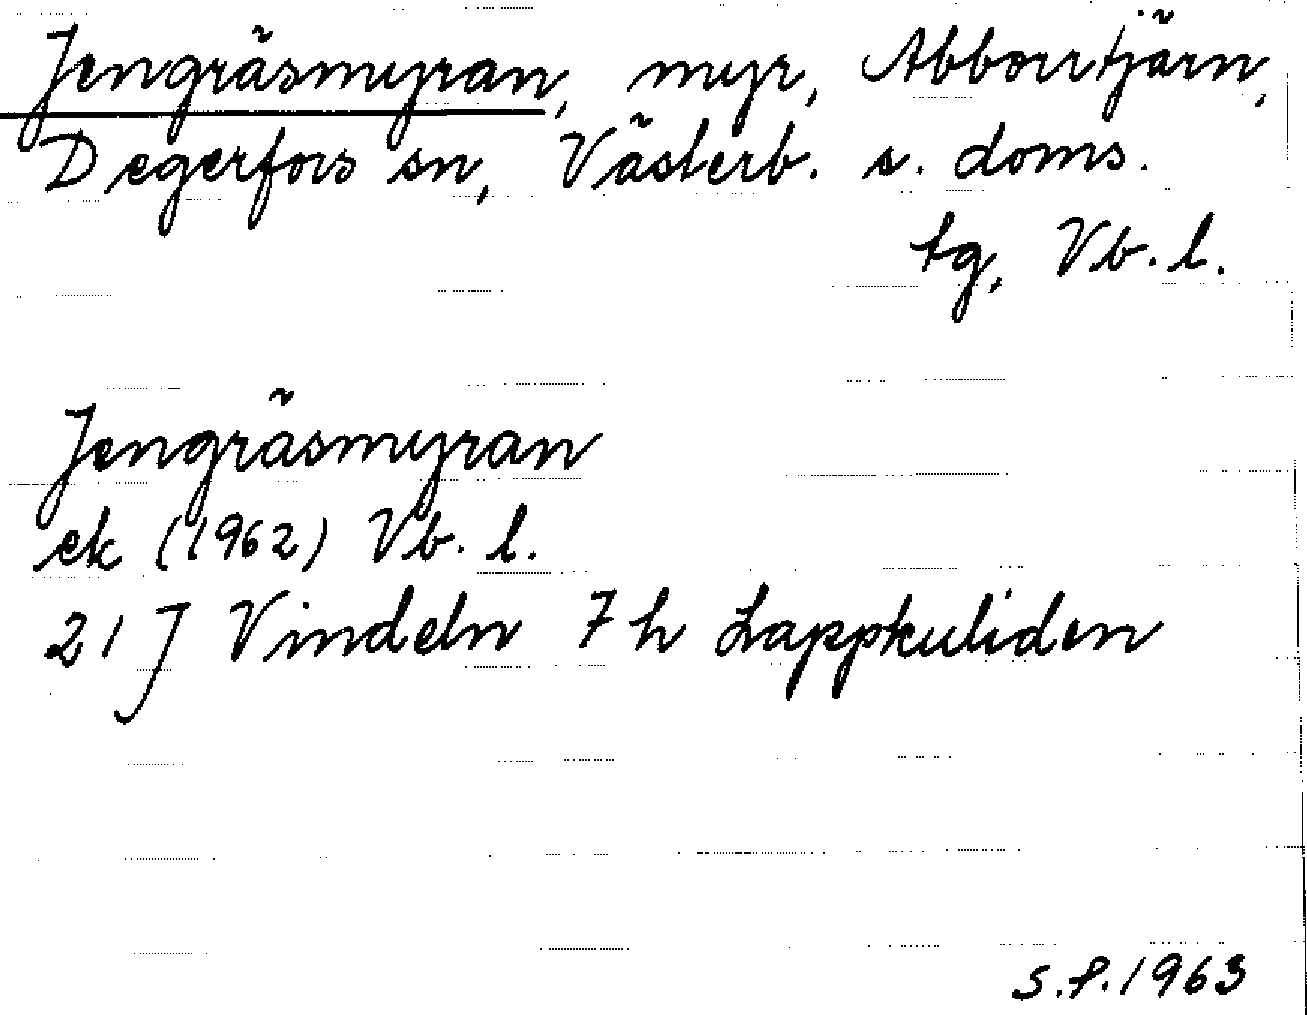 Jengräsmyran, myr, Abborrtjärn,
Degerfors sn, Västerb. s. doms.
tg, Vb. l.
Jengräsmyran
ek (1962) Vb. l.
21 J Vindeln 7 h Lappkuliden
S.P.1963